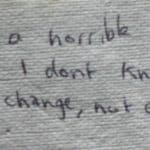 a horrible
I dont
change, not